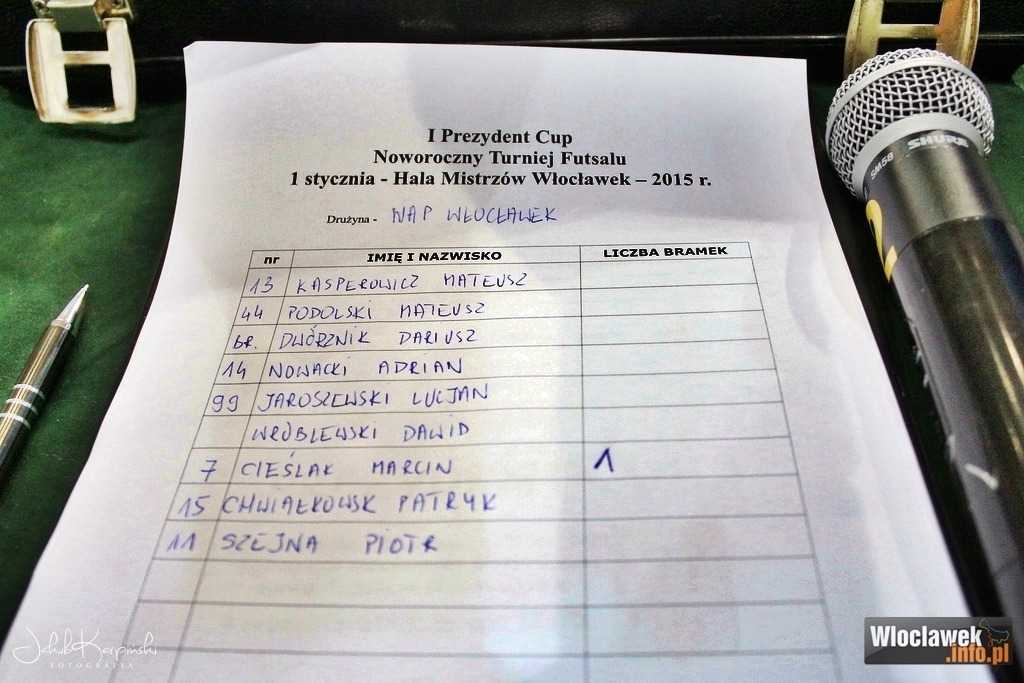 I Prezydent Cup
Noworoczny Turniej Futsalu
1 stycznia - Hala Mistrzów Włocławek – 2015 r.
Drużyna - WAP WŁOCŁAWEK
nr IMIĘ I NAZWISKO LICZBA BRAMEK
13 KASPEROWICZ MATEUSZ
44 PODOLSKI MATEUSZ
br. DWÓRZNIK DARIUSZ
14 NOWACKI ADRIAN
99 JAROSZEWSKI LUCJAN
WRÓBLEWSKI DAWID
7 CIEŚLAK MARCIN 1
15 CHWIAŁKOWSK PATRYK
11 SZEJNA PIOTR
SM58 SHURE
2
Jakub Karpiński
FOTOGRAFIA
Wloclawek
.info.pl